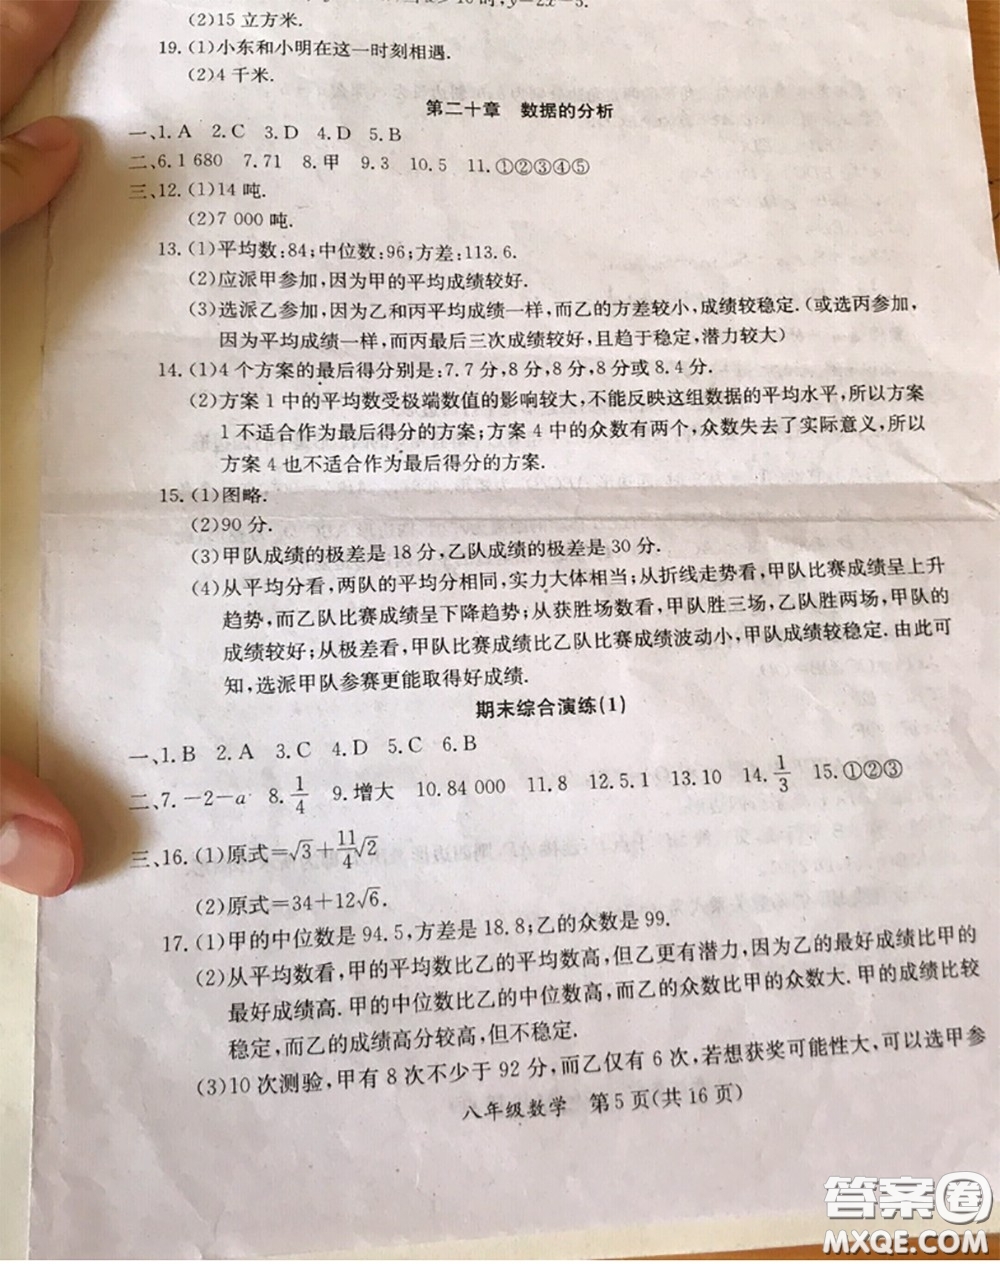 时,y=2x-5.
(2)15立方米.
19.(1)小东和小明在这一时刻相遇.
(2)4千米.
第二十章 数据的分析
一、1.A 2.C 3.D 4.D 5.B
二、6.1 680 7.71 8.甲 9.3 10.5 11.①②③④⑤
三、12.(1)14吨.
(2)7 000吨.
13.(1)平均数:84;中位数:96;方差:113.6.
(2)应派甲参加,因为甲的平均成绩较好.
(3)选派乙参加,因为乙和丙平均成绩一样,而乙的方差较小,成绩较稳定.(或选丙参加,
因为平均成绩一样,而丙最后三次成绩较好,且趋于稳定,潜力较大)
14.(1)4个方案的最后得分别是:7.7分,8分,8分,8分或8.4分.
(2)方案1中的平均数受极端数值的影响较大,不能反映这组数据的平均水平,所以方案
1不适合作为最后得分的方案;方案4中的众数有两个,众数失去了实际意义,所以
方案4也不适合作为最后得分的方案.
15.(1)图略.
(2)90分.
(3)甲队成绩的极差是18分,乙队成绩的极差是30分.
(4)从平均分看,两队的平均分相同,实力大体相当;从折线走势看,甲队比赛成绩呈上升
趋势,而乙队比赛成绩呈下降趋势;从获胜场数看,甲队胜三场,乙队胜两场,甲队的
成绩较好;从极差看,甲队比赛成绩比乙队比赛成绩波动小,甲队成绩较稳定.由此可
知,选派甲队参赛更能取得好成绩.
期末综合演练(1)
一、1.B 2.A 3.C 4.D 5.C 6.B
二、7.-2-a 8.1/4 9.增大 10.84 000 11.8 12.5.1 13.10 14.1/3 15.①②③
三、16.(1)原式=√3+11/4√2
(2)原式=34+12√6.
17.(1)甲的中位数是94.5,方差是18.8;乙的众数是99.
(2)从平均数看,甲的平均数比乙的平均数高,但乙更有潜力,因为乙的最好成绩比甲的
最好成绩高.甲的中位数比乙的中位数高,而乙的众数比甲的众数大.甲的成绩比较
稳定,而乙的成绩高分较高,但不稳定.
(3)10次测验,甲有8次不少于92分,而乙仅有6次,若想获奖可能性大,可以选甲参
八年级数学 第5页(共16页)
答案圈
MXQE.COM